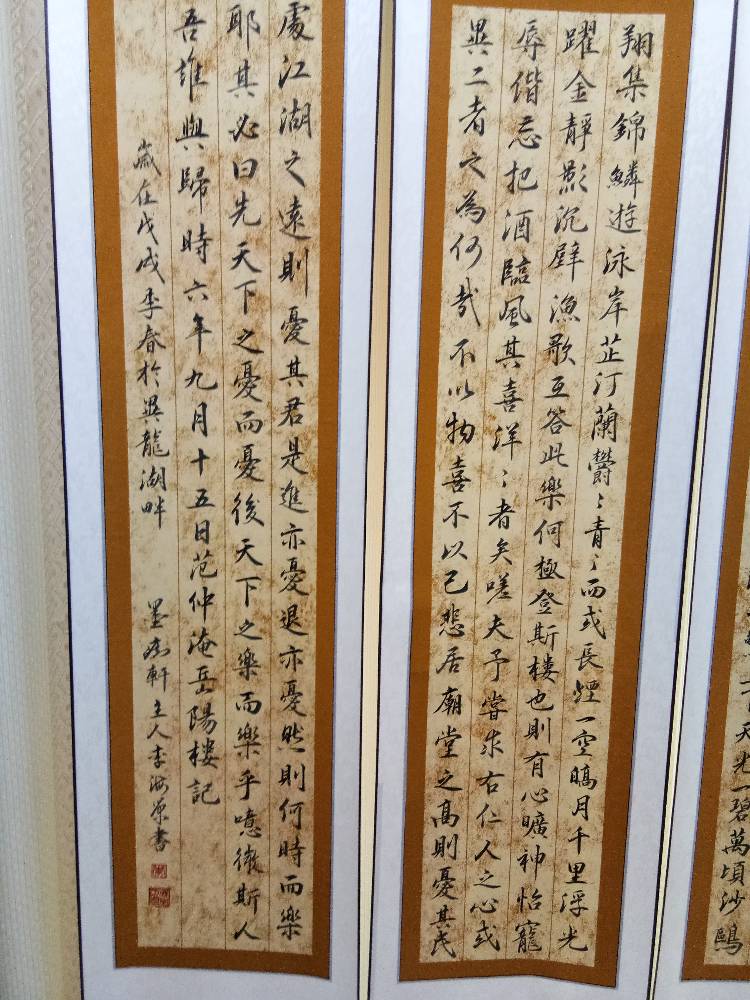 天光一碧萬頃沙鷗
翔集錦鱗遊泳岸芷汀蘭鬱〻青〻而或長煙一空皜月千里浮光
躍金靜影沉璧漁歌互答此樂何極登斯樓也則有心曠神怡寵
辱偕忘把酒臨風其喜洋〻者矣嗟夫予嘗求古仁人之心或
異二者之為何哉不以物喜不以己悲居廟堂之高則憂其民
處江湖之遠則憂其君是進亦憂退亦憂然則何時而樂
耶其必曰先天下之憂而憂後天下之樂而樂乎噫微斯人
吾誰與歸時六年九月十五日范仲淹岳陽樓記
歲在戊戌季春於異龍湖畔 墨軒主人李海原書